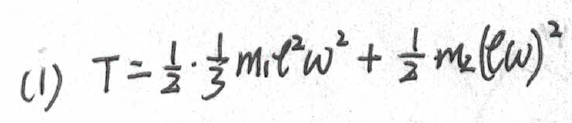 (1) T = \frac{1}{2} \cdot \frac{1}{3} m_1 l^2 ω^2 + \frac{1}{2} m_2 (lω)^2